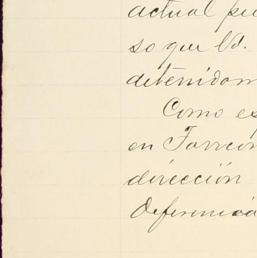 actual pu
so que Ud.
detenidam
Como es
en Torreón
dirección
deferencia